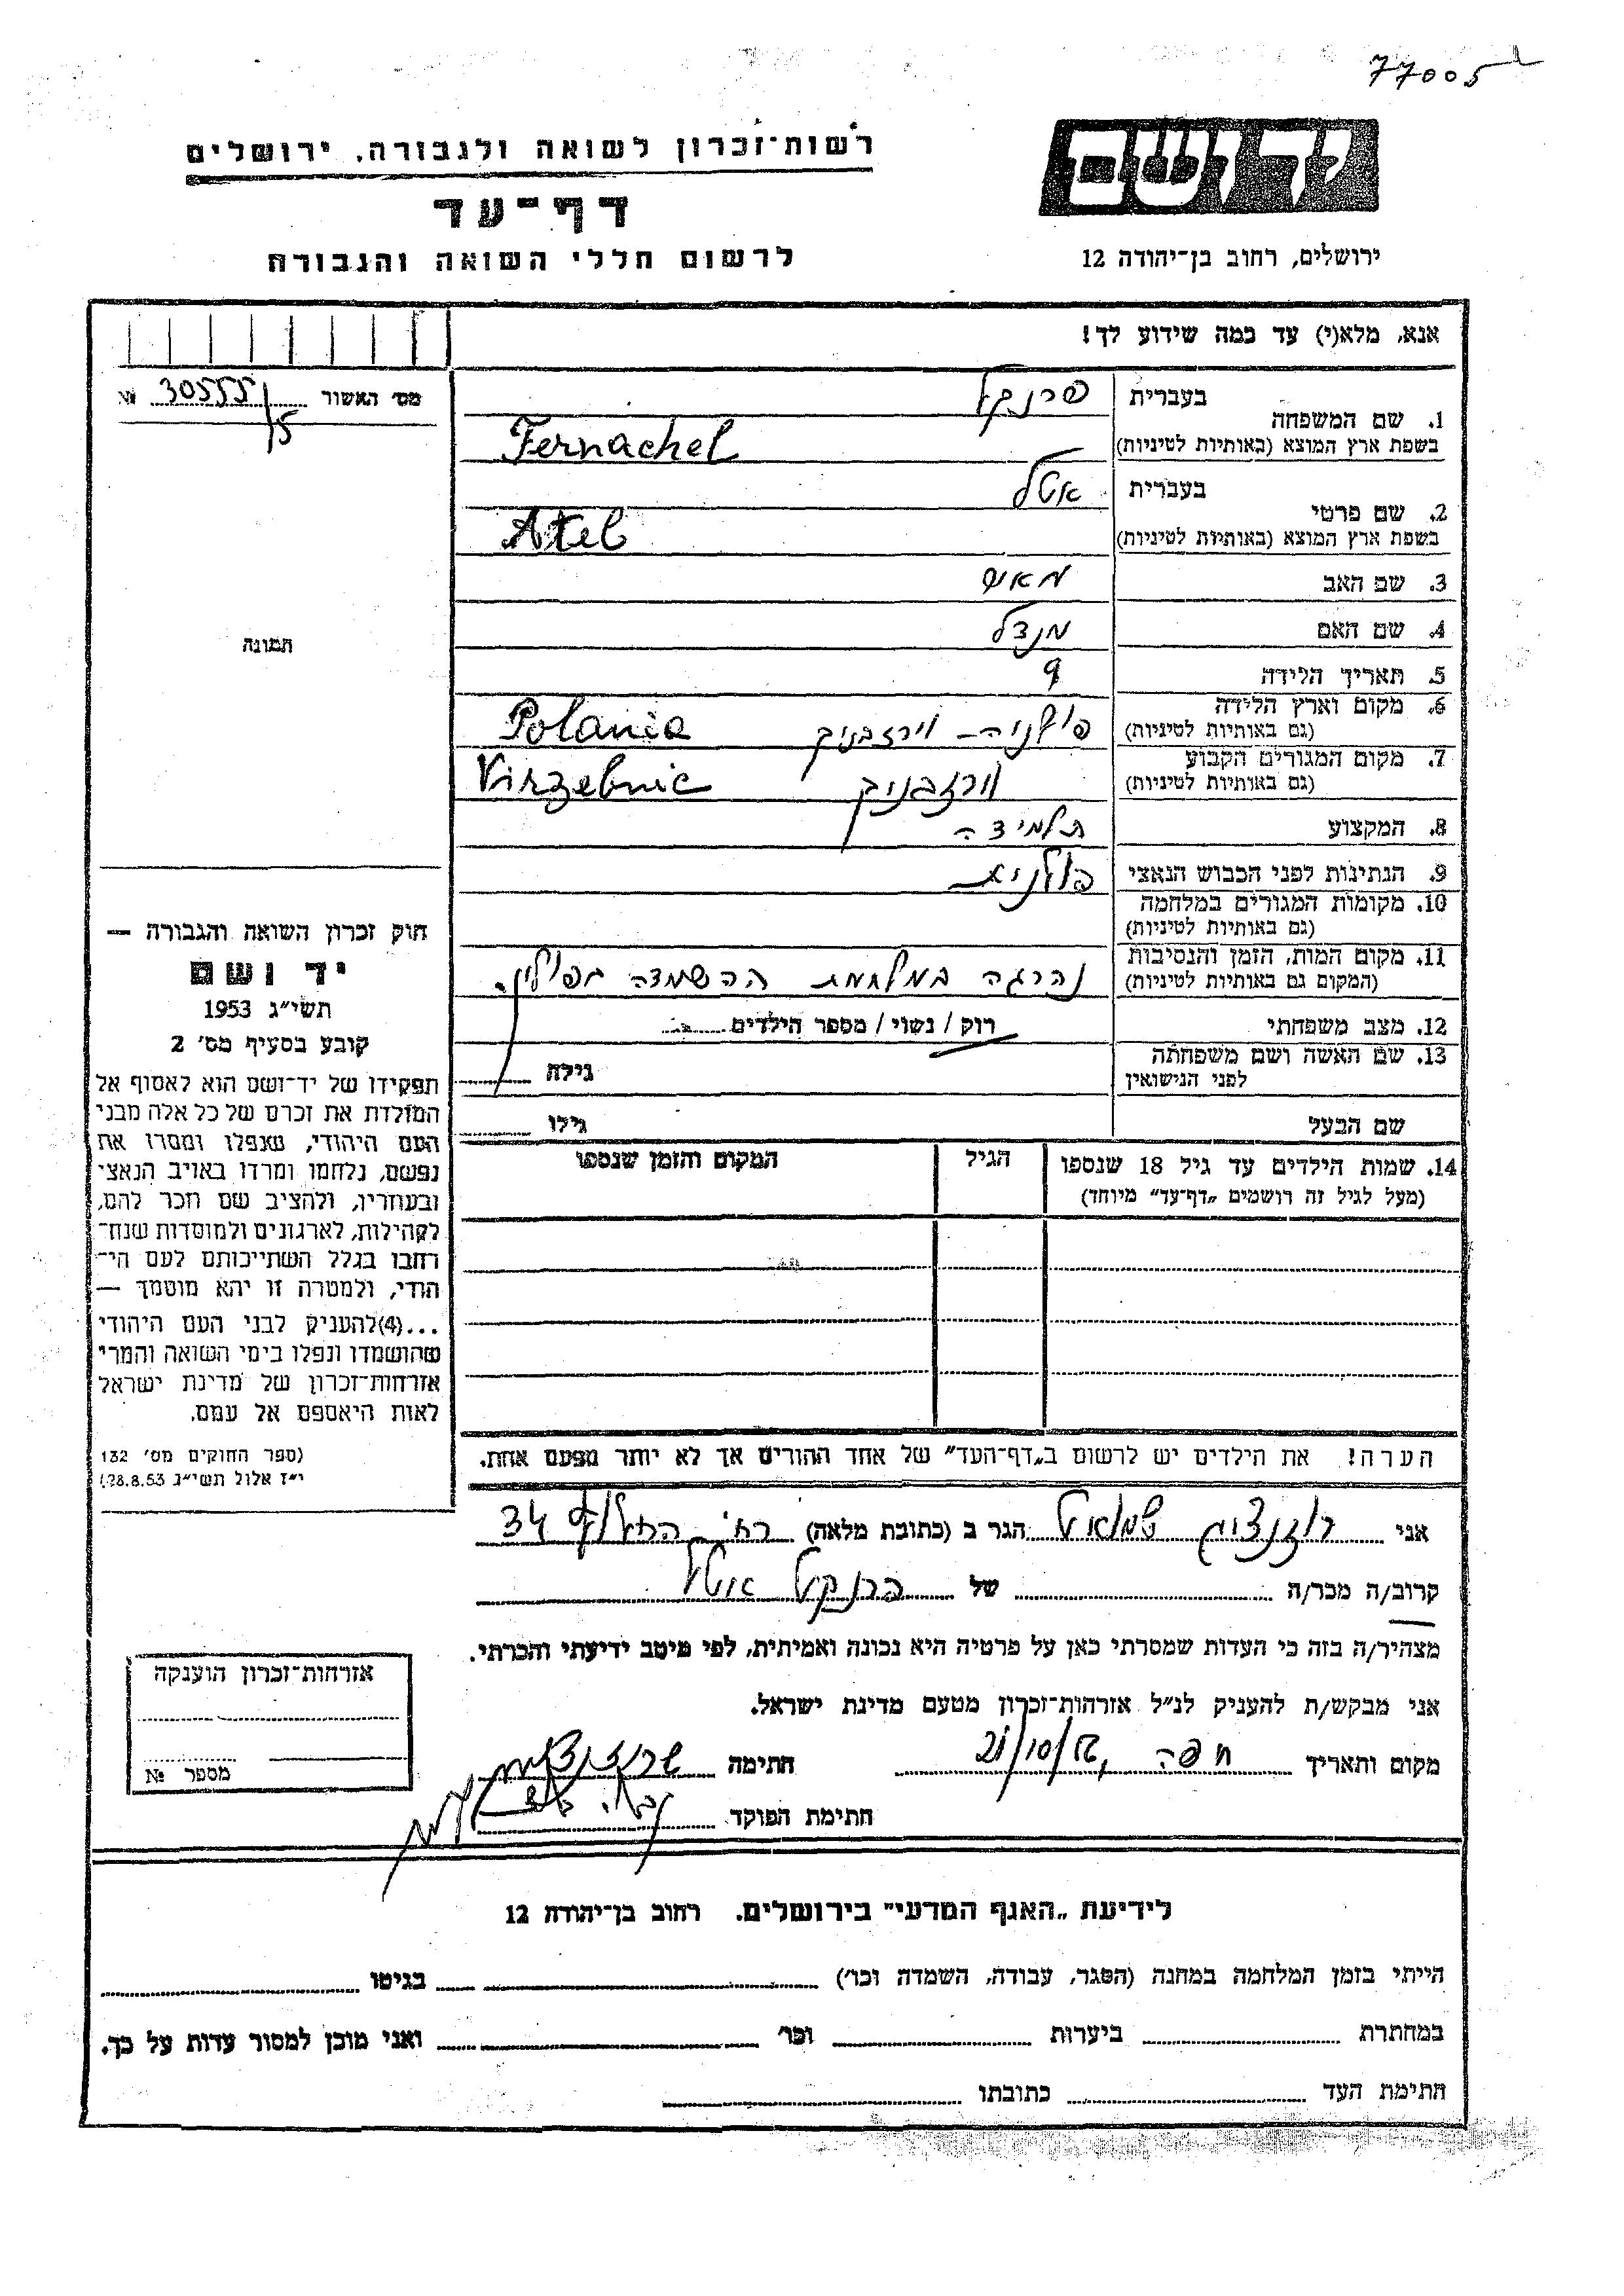 77005
רשות־זכרון לשואה ולגבורה. ירושלים
ידושם
דף־עד
לרשום חללי השואה והגבורה
ירושלים, רחוב בן־יהודה 12
אנא, מלא(י) עד כמה שידוע לך!
מס׳ האשור № 30555/15
1. שם המשפחה
בעברית פרנקל
בשפת ארץ המוצא (באותיות לטיניות) Fernachel
2. שם פרטי
בעברית אטל
בשפת ארץ המוצא (באותיות לטיניות) Atel
3. שם האב
4. שם האם מנדל
5. תאריך הלידה 9
6. מקום וארץ הלידה פולניה – וירזבניק Polania
(גם באותיות לטיניות)
7. מקום המגורים הקבוע וורזבניק Virzebnic
(גם באותיות לטיניות)
8. המקצוע תלמידה
9. הנתינות לפני הכבוש הנאצי פולנית
10. מקומות המגורים במלחמה
(גם באותיות לטיניות)
11. מקום המות, הזמן והנסיבות נהרגה במלחמת ההשמדה בפולין.
(המקום גם באותיות לטיניות)
12. מצב משפחתי רוק / נשוי / מספר הילדים
13. שם האשה ושם משפחתה
לפני הנישואין גילה
שם הבעל גילו
14. שמות הילדים עד גיל 18 שנספו
(מעל לגיל זה רושמים „דף־עד״ מיוחד)
הגיל
המקום והזמן שנספו
הערה! את הילדים יש לרשום ב„דף־העד״ של אחד ההורים אך לא יותר מפעם אחת.
תמונה
חוק זכרון השואה והגבורה —
יד ושם
תשי״ג 1953
קובע בסעיף מס׳ 2
תפקידו של יד־ושם הוא לאסוף אל
המולדת את זכרם של כל אלה מבני
העם היהודי, שנפלו ומסרו את
נפשם, נלחמו ומרדו באויב הנאצי
ובעוזריו, ולהציב שם וזכר להם,
לקהילות, לארגונים ולמוסדות שנח־
רחבו בגלל השתייכותם לעם הי־
הודי, ולמטרה זו יהא מוסמך —
...(4)להעניק לבני העם היהודי
שהושמדו ונפלו בימי השואה והמרי
אזרחות־זכרון של מדינת ישראל
לאות היאספם אל עמם.
(ספר החוקים מס׳ 132
י״ז אלול תשי״ג 28.8.53)
אני שמואל הגר ב (כתובת מלאה) רח׳ 34
קרוב/ה מכר/ה של פרנקל אטל
מצהיר/ה בזה כי העדות שמסרתי כאן על פרטיה היא נכונה ואמיתית, לפי מיטב ידיעתי והכרתי.
אני מבקש/ת להעניק לנ״ל אזרחות־זכרון מטעם מדינת ישראל.
מקום ותאריך חיפה חתימה
חתימת הפוקד
אזרחות־זכרון הוענקה
מספר №
לידיעת „האגף המדעי״ בירושלים. רחוב בן־יהודה 12
הייתי בזמן המלחמה במחנה (הסגר, עבודה, השמדה וכו׳) בגיטו
במחתרת ביערות וכו׳ ואני מוכן למסור עדות על כך.
חתימת העד כתובתו